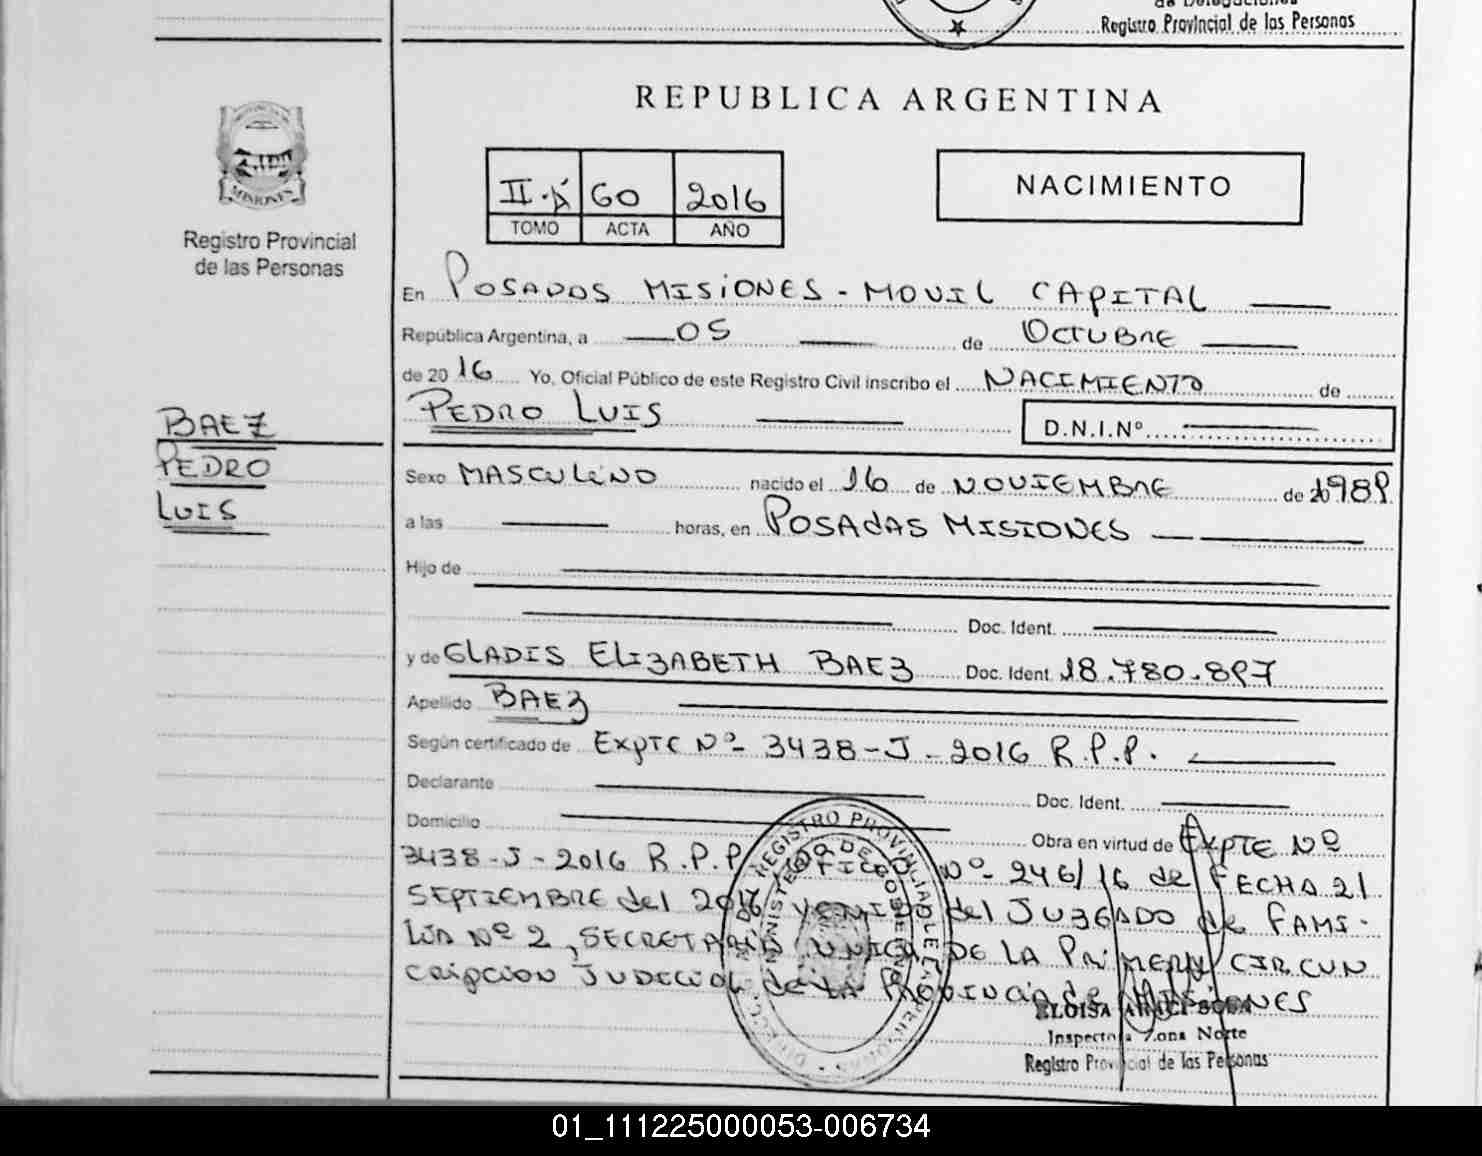 de Delegaciones
Registro Provincial de las Personas
MISIONES
Registro Provincial
de las Personas
REPUBLICA ARGENTINA
II-A 60 2016
TOMO ACTA AÑO
NACIMIENTO
En POSADAS MISIONES - MOVIL CAPITAL
República Argentina, a 05 de OCTUBRE
de 2016 Yo, Oficial Público de este Registro Civil inscribo el NACIMIENTO de
PEDRO LUIS D.N.I.Nº
BAEZ
PEDRO
LUIS
Sexo MASCULINO nacido el 16 de NOVIEMBRE de 1989
a las horas, en POSADAS MISIONES
Hijo de
Doc. Ident.
y de GLADIS ELIZABETH BAEZ Doc. Ident. 18.780.897
Apellido BAEZ
Según certificado de EXPTE Nº 3438-J-2016 R.P.P.
Declarante Doc. Ident.
Domicilio Obra en virtud de EXPTE Nº
3438-J-2016 R.P.P. OFICIO Nº 246/16 de FECHA 21
SEPTIEMBRE del 2016 VENIDO del JUZGADO de FAMI-
LIA Nº 2, SECRETARIA UNICA DE LA PRIMERA CIRCUN
CRIPCION JUDICIAL de LA PROVINCIA de MISIONES
REGISTRO PROVINCIAL DE LAS PERSONAS
MINISTERIO DE GOBIERNO
Inspectora Zona Norte
Registro Provincial de las Personas
01_111225000053-006734